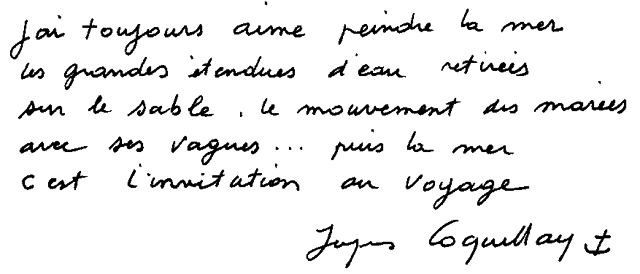 J'ai toujours aimé peindre la mer
les grandes étendues d'eau retirées
sur le sable, le mouvement des marées
avec ses vagues... puis la mer
c'est l'invitation au voyage
Jacques Coquillay